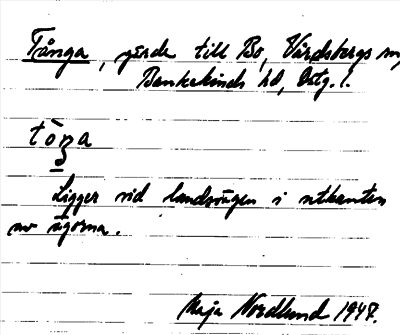 Tånga, gärde till Bo, Vårdsbergs sn,
Bankekinds hd, Östg. l.
tòŋa
Ligger vid landsvägen i utkanten
av ägorna.
Maja Nordlund 1948.